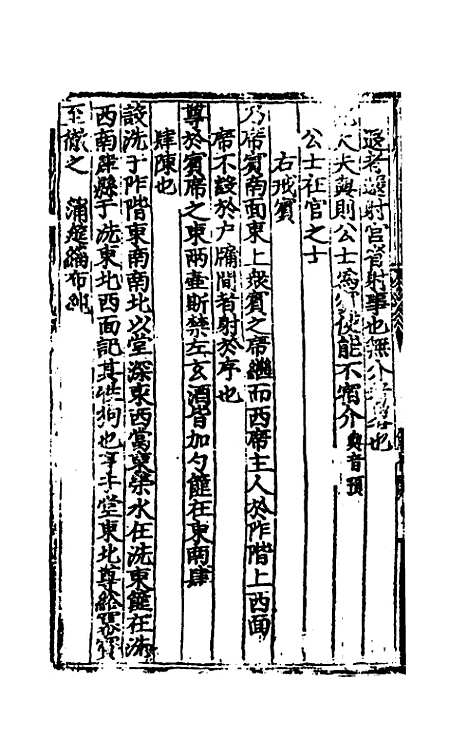 退者還射宮省射事也無介
大夫與則公士為賓使能不宿介與音預
公士在官之士
右戒賓
乃席賓南面東上衆賓之席繼而西席主人於阼階上西面
席不設於戶牖間者射於序也
尊於賓席之東兩壺斯禁左玄酒皆加勺篚在東南肆
肆陳也
設洗于阼階東南南北以堂深東西當東榮水在洗東篚在洗
西南肆縣于洗東北西面記其牲狗也亨于堂東北尊綌冪賓
至徹之 蒲筵緇布純